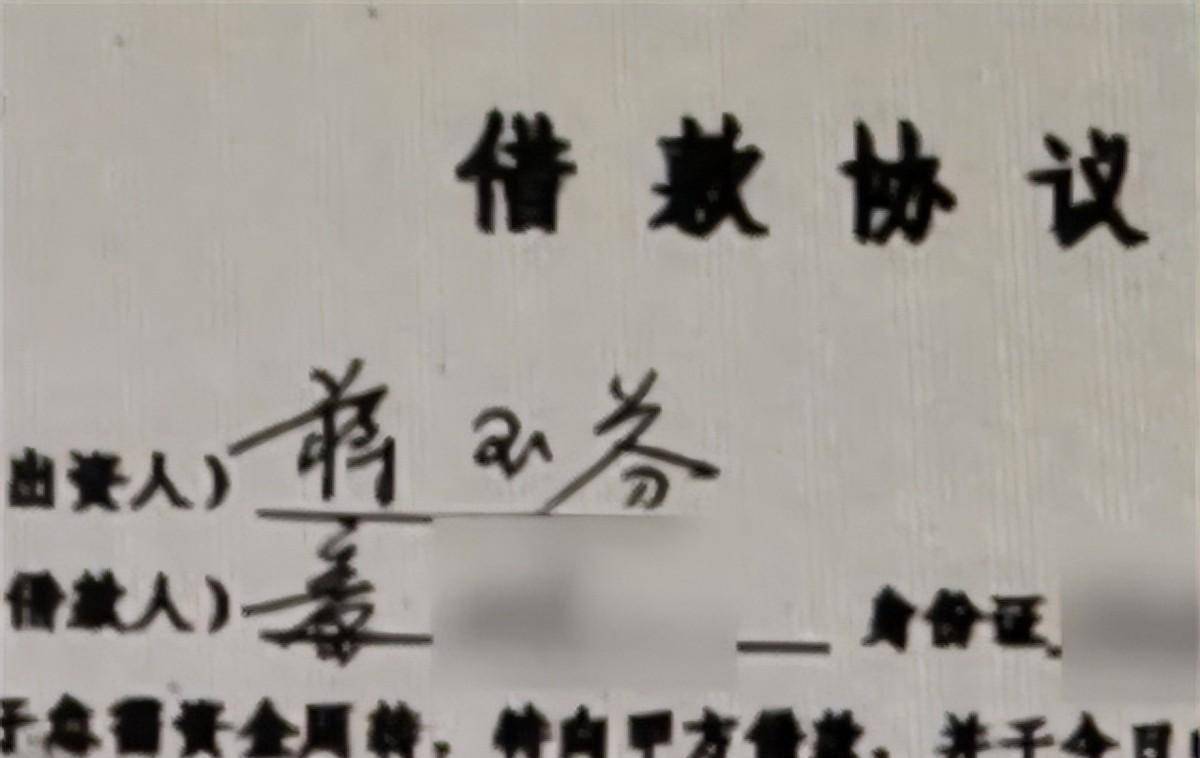 借款协议
出资人)蒋玉芬
借款人)姜 身份证
于急需资金周转,特向甲方借款,并于今日